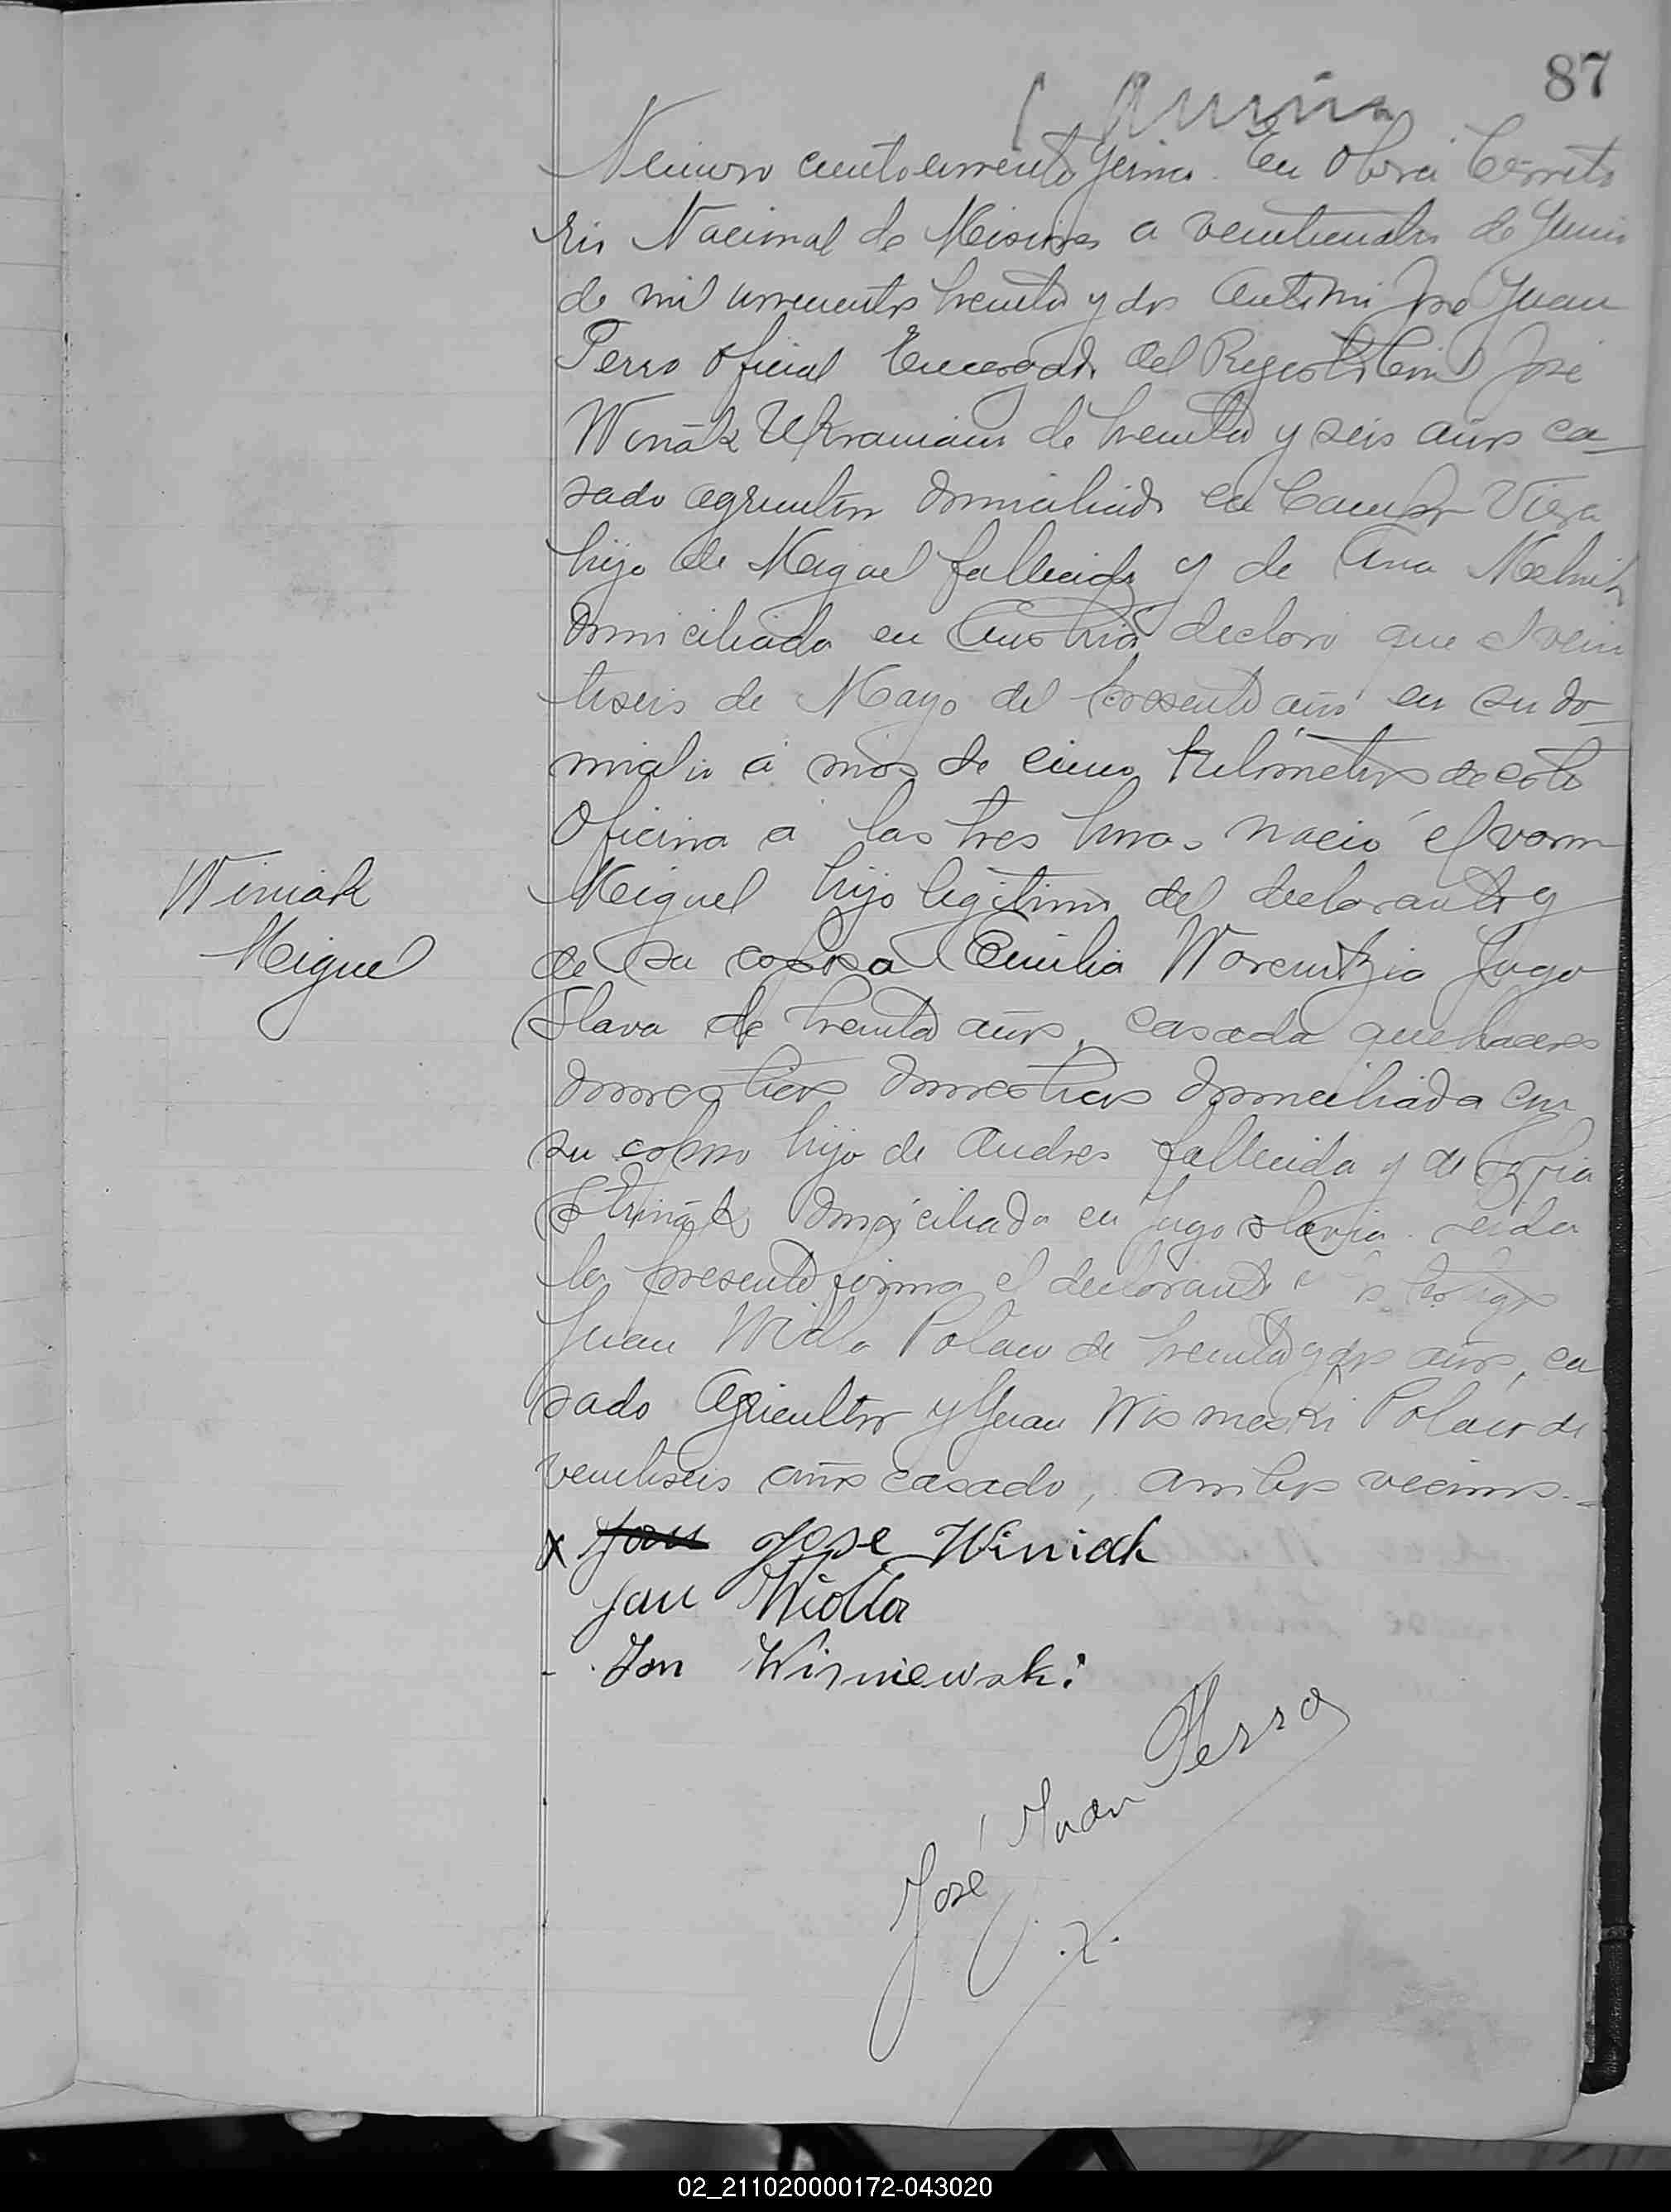 87
Numero ciento cincuenta y cinco. En Oberá Territo
rio Nacional de Misiones a veinticuatro de Junio
de mil novecientos treinta y dos Ante mi José Juan
Perro Oficial Encargado del Registro Civil José
Winák Ukraniano de treinta y seis años ca_
sado agricultor domiciliado en Campo Viera
hijo de Miguel fallecido y de Ana Melnik
domiciliada en Austria declaro que el vein
tiseis de Mayo del presente año en su do_
micilio á mas de cinco kilómetros de esta
Oficina a las tres horas nació el varon
Winiak
Miguel
Miguel hijo legitimo del declarante y
de su esposa Emilia Yugo
Slava de treinta años, casada quehaceres
domesticos domesticos domiciliada con
su esposo hija de Andres fallecida y de Sofia
Strinák domiciliada en Yugoslavia. Leida
la presente firma el declarante testigos
Juan Widla Polaco de treinta y dos años, ca
sado Agricultor y Juan Wismeski Polaco de
veintiseis años casado, ambos vecinos._
x Jose Winiak
Jan Widla
Jan Wisniewski
José Juan Perro